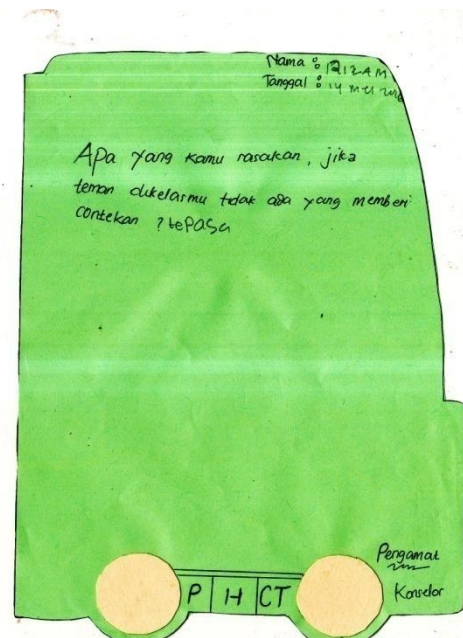 Nama : RIZAM
Tanggal : 14 Mei
Apa yang kamu rasakan, jika
teman dikelasmu tidak ada yang memberi
contekan ? tePASa
P H CT
Pengamat
Konselor